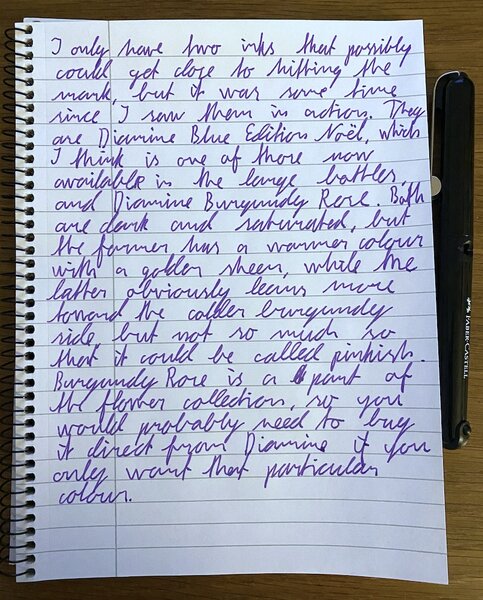 I only have two inks that possibly
could get close to hitting the
mark, but it was some time
since I saw them in action. They
are Diamine Blue Edition Noël, which
I think is one of those now
available in the large bottles,
and Diamine Burgundy Rose. Both
are dark and saturated, but
the former has a warmer colour
with a golden sheen, while the
latter obviously leans more
toward the colder burgundy
side, but not so much so
that it could be called pinkish.
Burgundy Rose is a part of
the flower collection, so you
would probably need to buy
it direct from Diamine if you
only want that particular
colour.
FABER-CASTELL